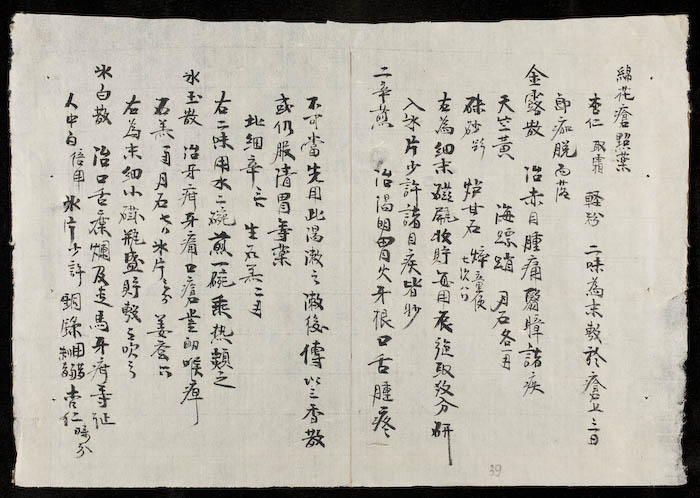 綿花瘡點藥
杏仁 取霜 輕粉 二味為末敷於瘡上三日
即痂脫而落
金露散 治赤目腫痛翳瞕諸疾
天竺黃 海螵蛸 月石各一兩
硃砂 炉甘石 童便 七次
右為細末磁瓶收貯每用 取數分研
入冰片少許諸目疾皆妙
二辛煎 治陽明胃火牙根口舌腫疼
不可當先用此湯漱之漱後傅以三香散
或仍服清胃等藥
北細辛三 生石羔一兩
右二味用水二碗煎一碗乘热頻之
冰玉散 治牙疳牙痛口瘡 喉痺
石羔一兩月石七 冰片三分 姜蚕
右為末細小磁瓶盛貯敷之吹之
冰白散 治口舌糜爛及走馬牙疳等证
人中白倍用 冰片少許 銅綠用醋製 杏仁等分
39